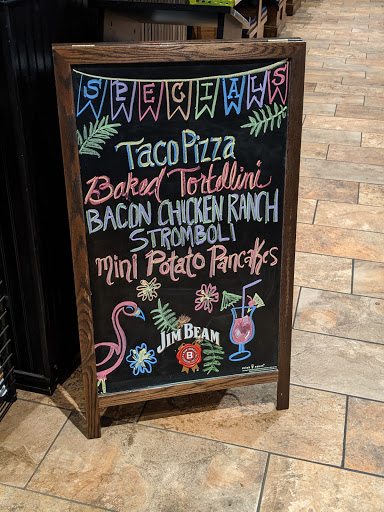 SPECIALS
Taco Pizza
Baked Tortellini
BACON CHICKEN RANCH
STROMBOLI
mini Potato Pancakes
JIM BEAM
B